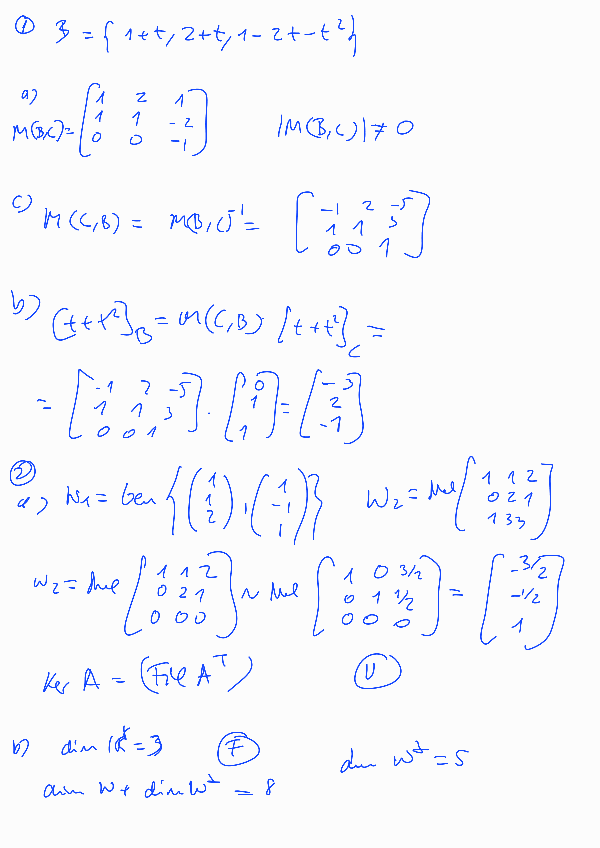 ① B = { 1+t, 2+t, 1-2t-t² }
a) M(B,C) = [ 1 2 1 ; 1 1 -2 ; 0 0 -1 ] |M(B,C)| ≠ 0
c) M(C,B) = M(B,C)⁻¹ = [ -1 2 -5 ; 1 1 3 ; 0 0 1 ]
b) [t+t²]_B = M(C,B) · [t+t²]_C =
= [ -1 2 -5 ; 1 1 3 ; 0 0 1 ] · [ 0 ; 1 ; 1 ] = [ -3 ; 2 ; -1 ]
②
a) W₁ = Gen { ( 1 ; 1 ; 2 ), ( 1 ; -1 ; 1 ) } W₂ = Nul [ 1 1 2 ; 0 2 1 ; 1 3 3 ]
W₂ = Nul [ 1 1 2 ; 0 2 1 ; 0 0 0 ] ~ Nul [ 1 0 3/2 ; 0 1 1/2 ; 0 0 0 ] = [ -3/2 ; -1/2 ; 1 ]
Ker A = (Fil Aᵀ) Ⓥ
b) dim = 3 Ⓕ dim W⊥ = 5
dim W + dim W⊥ = 8